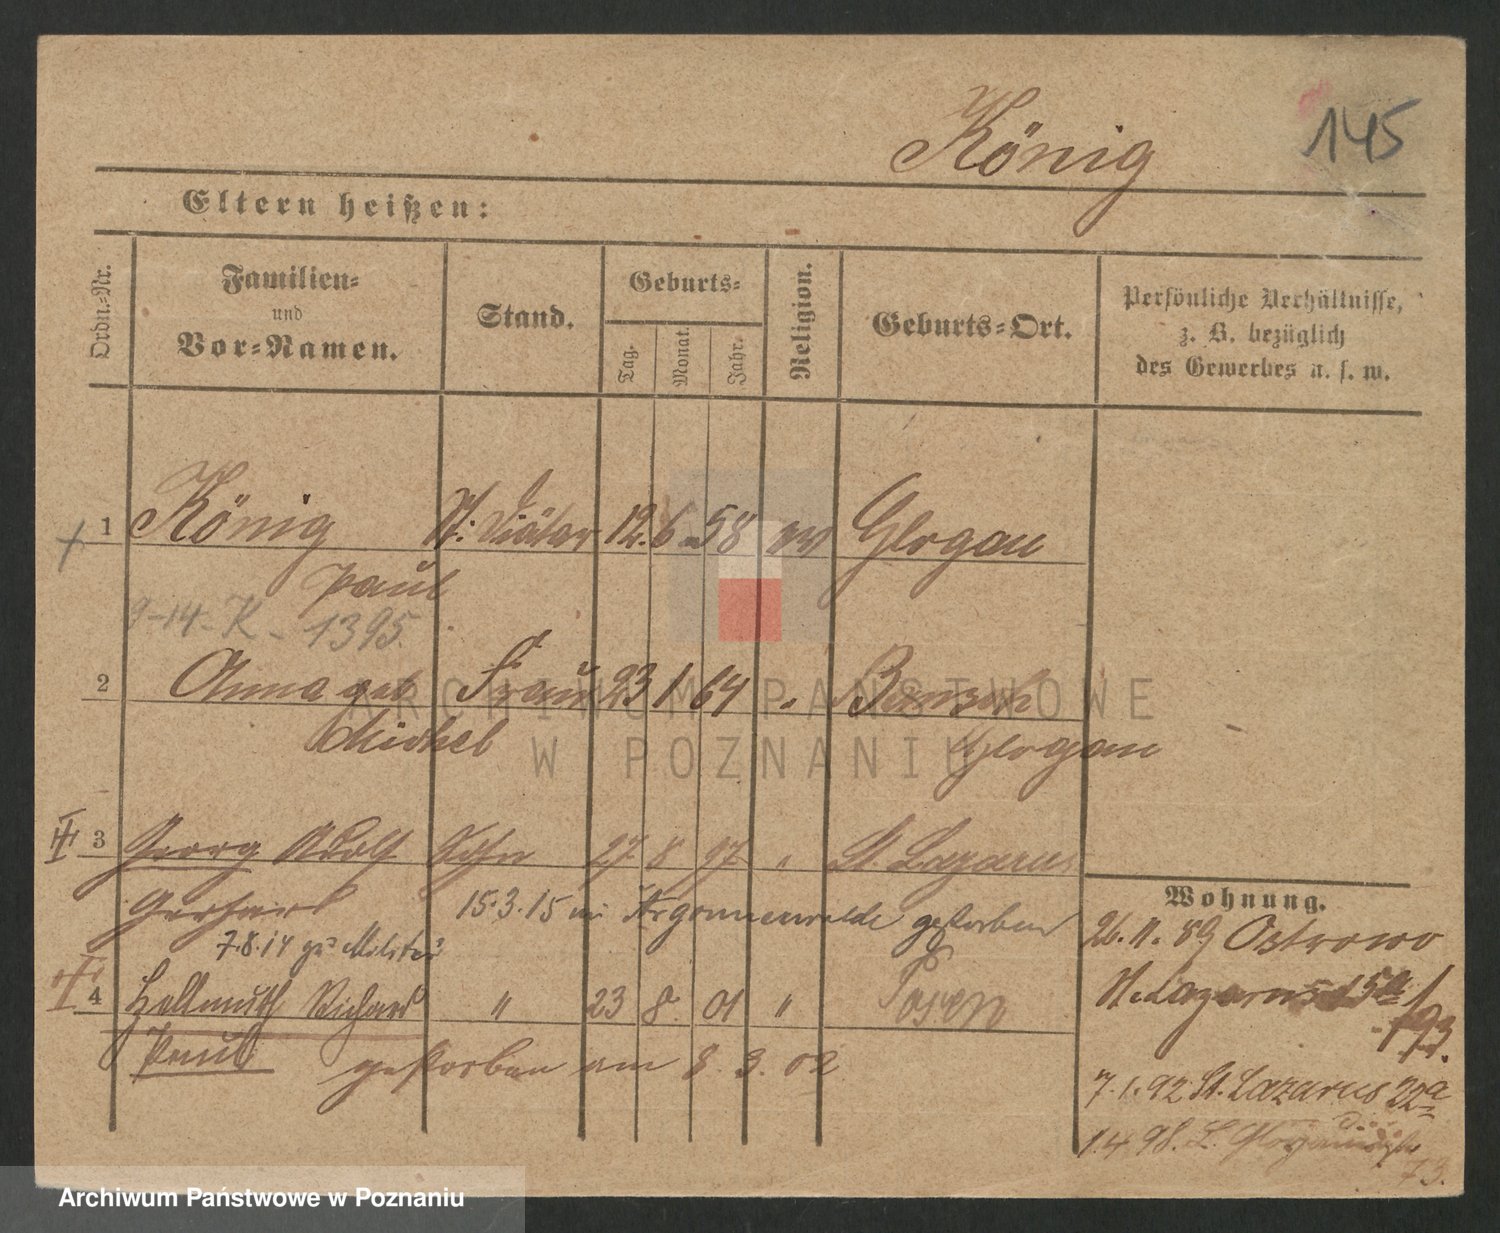 König
145
Eltern heißen:
Ordn.-Nr.
Familien-
und
Vor-Namen.
Stand.
Geburts-
Tag.
Monat.
Jahr.
Religion.
Geburts-Ort.
Persönliche Verhältnisse,
z. B. bezüglich
des Gewerbes u. s. w.
1 König Diätar 12. 6 58 ev Glogau
Paul
9-14-K-1395.
2 Anna geb Frau 23 1 64 "
Michel Glogau
3 Georg Adolf Sohn 27 8 97 " St. Lazarus
Gerhard 15.3.15 im Argonnenwalde gestorben
7.8.14 zu Militär
4 Hellmuth Richard " 23 8. 01 " Posen
Paul gestorben am 8. 3. 02
Wohnung.
26.11.89 Ostrowo
St. Lazarus 15a 1/
93.
7.1.92 St. Lazarus 22a
1.4.98. L.
73.
ARCHIWUM PAŃSTWOWE
W POZNANIU
Archiwum Państwowe w Poznaniu